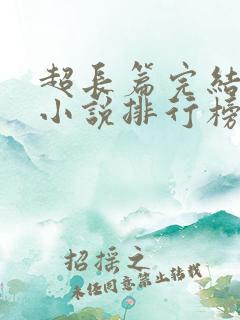 超长篇完结
小说排行榜
招摇之
未经同意禁止转载